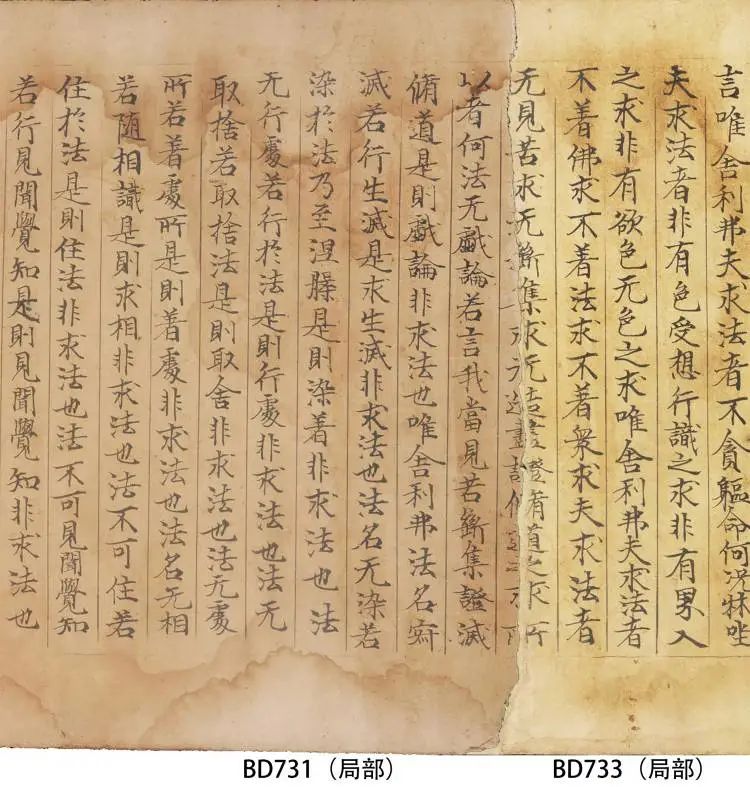 言唯舍利弗夫求法者不貪軀命何况牀坐
夫求法者非有色受想行識之求非有界入
之求非有欲色无色之求唯舍利弗夫求法者
不着佛求不着法求不着衆求夫求法者
无見苦求无斷集求无造盡證脩道之求所
以者何法无戲論若言我當見苦斷集證滅
脩道是則戲論非求法也唯舍利弗法名寂
滅若行生滅是求生滅非求法也法名无染若
染於法乃至涅槃是則染着非求法也法
无行處若行於法是則行處非求法也法无
取捨若取捨法是則取舍非求法也法无處
所若着處所是則着處非求法也法名无相
若随相識是則求相非求法也法不可住若
住於法是則住法非求法也法不可見聞覺知
若行見聞覺知是則見聞覺知非求法也
BD731（局部）
BD733（局部）